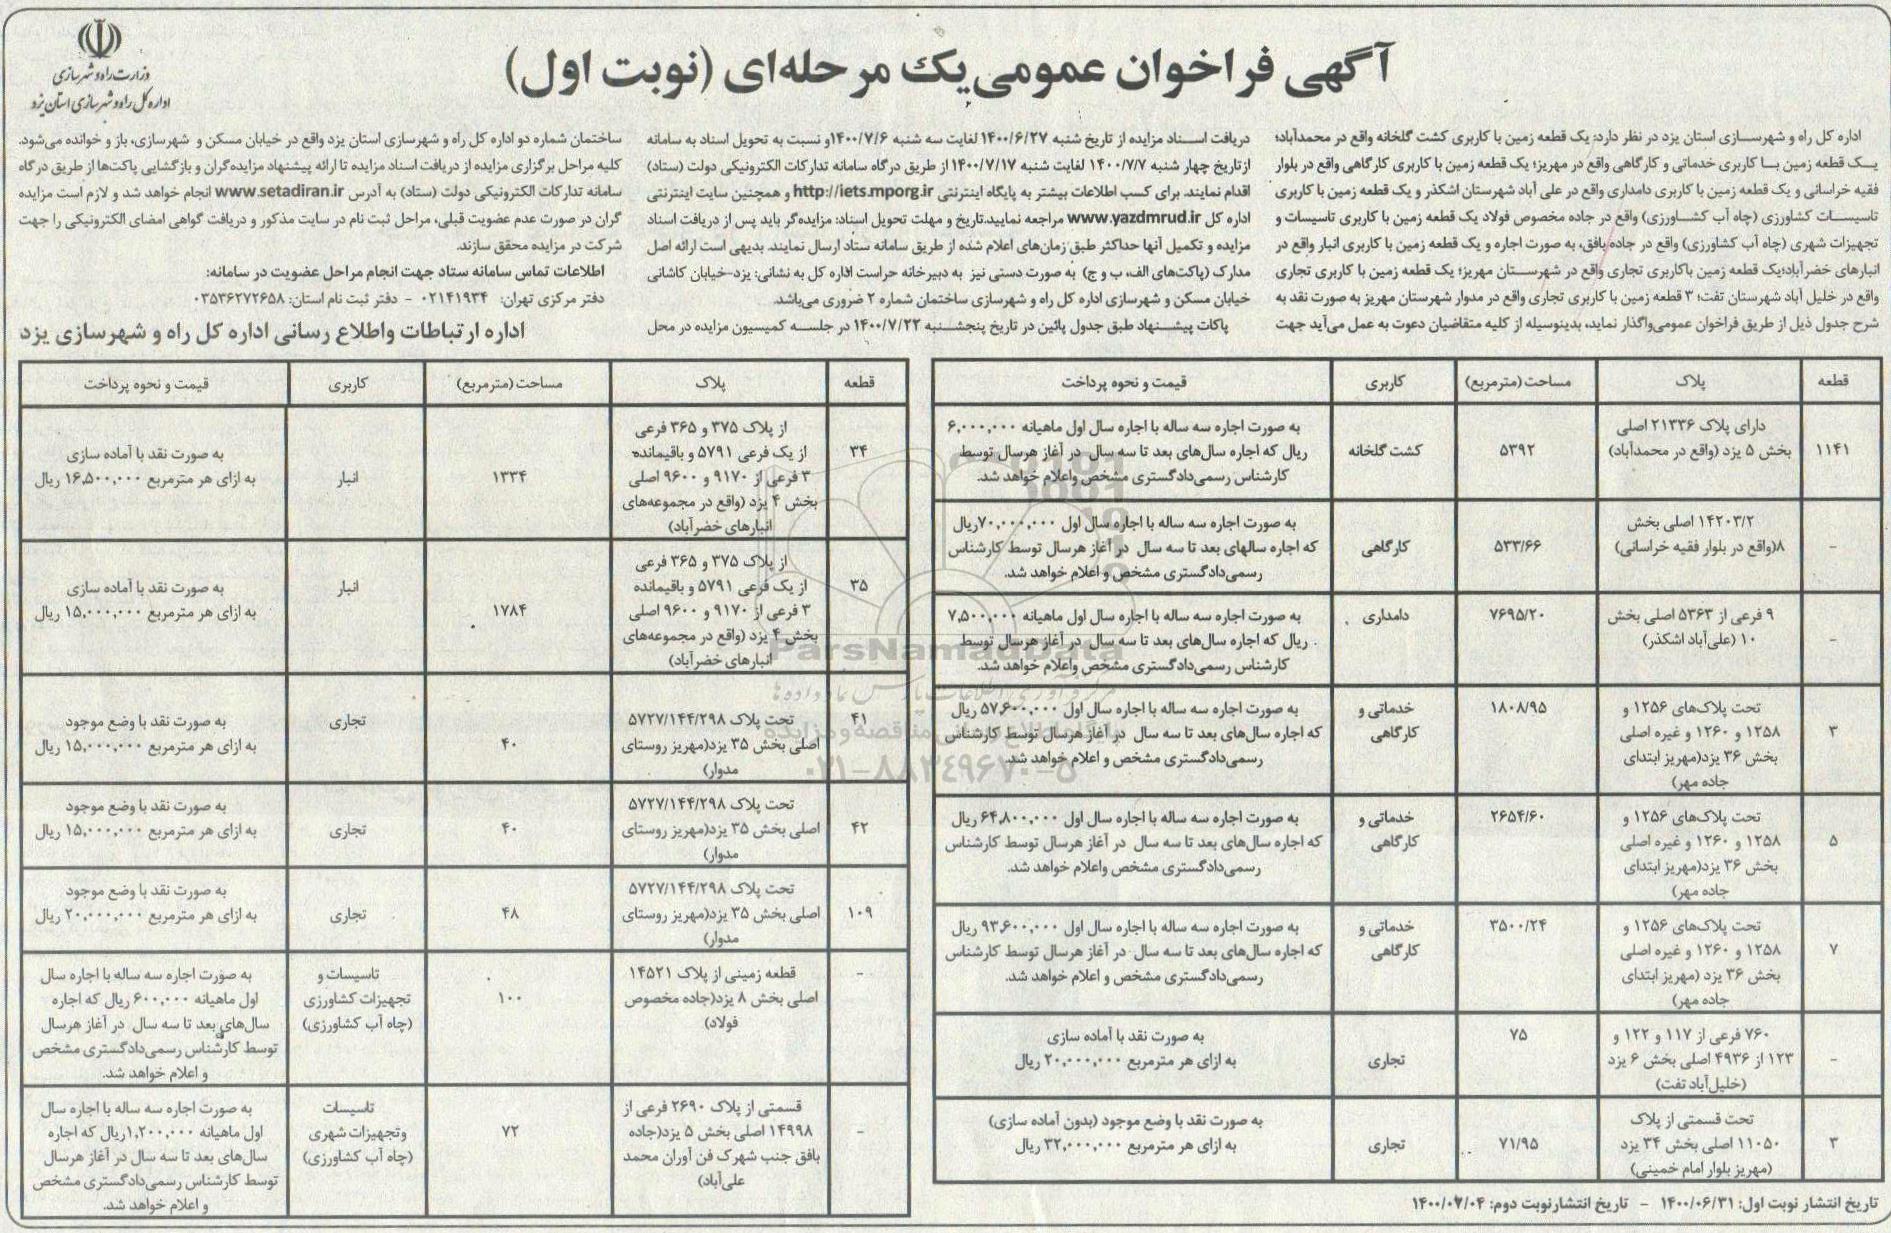 آگهی فراخوان عمومی یک مرحله‌ای (نوبت اول)
وزارت راه و شهرسازی
اداره کل راه و شهرسازی استان یزد
اداره کل راه و شهرسازی استان یزد در نظر دارد: یک قطعه زمین با کاربری کشت گلخانه واقع در محمدآباد؛
یک قطعه زمین با کاربری خدماتی و کارگاهی واقع در مهریز؛ یک قطعه زمین با کاربری کارگاهی واقع در بلوار
فقیه خراسانی و یک قطعه زمین با کاربری دامداری واقع در علی آباد شهرستان اشکذر و یک قطعه زمین با کاربری
تاسیسات کشاورزی (چاه آب کشاورزی) واقع در جاده مخصوص فولاد یک قطعه زمین با کاربری تاسیسات و
تجهیزات شهری (چاه آب کشاورزی) واقع در جاده بافق، به صورت اجاره و یک قطعه زمین با کاربری انبار واقع در
انبارهای خضرآباد؛یک قطعه زمین باکاربری تجاری واقع در شهرستان مهریز؛ یک قطعه زمین با کاربری تجاری
واقع در خلیل آباد شهرستان تفت؛ ۳ قطعه زمین با کاربری تجاری واقع در مدوار شهرستان مهریز به صورت نقد به
شرح جدول ذیل از طریق فراخوان عمومی‌واگذار نماید، بدینوسیله از کلیه متقاضیان دعوت به عمل می‌آید جهت
دریافت اسناد مزایده از تاریخ شنبه ۱۴۰۰/۶/۲۷ لغایت سه شنبه ۱۴۰۰/۷/۶و نسبت به تحویل اسناد به سامانه
ازتاریخ چهار شنبه ۱۴۰۰/۷/۷ لغایت شنبه ۱۴۰۰/۷/۱۷ از طریق درگاه سامانه تدارکات الکترونیکی دولت (ستاد)
اقدام نمایند. برای کسب اطلاعات بیشتر به پایگاه اینترنتی http://iets.mporg.ir و همچنین سایت اینترنتی
اداره کل www.yazdmrud.ir مراجعه نمایید.تاریخ و مهلت تحویل اسناد: مزایده‌گر باید پس از دریافت اسناد
مزایده و تکمیل آنها حداکثر طبق زمان‌های اعلام شده از طریق سامانه ستاد ارسال نمایند. بدیهی است ارائه اصل
مدارک (پاکت‌های الف، ب و ج) به صورت دستی نیز به دبیرخانه حراست اداره کل به نشانی: یزد-خیابان کاشانی
خیابان مسکن و شهرسازی اداره کل راه و شهرسازی ساختمان شماره ۲ ضروری می‌باشد.
پاکات پیشنهاد طبق جدول پائین در تاریخ پنجشنبه ۱۴۰۰/۷/۲۲ در جلسه کمیسیون مزایده در محل
ساختمان شماره دو اداره کل راه و شهرسازی استان یزد واقع در خیابان مسکن و شهرسازی، باز و خوانده می‌شود.
کلیه مراحل برگزاری مزایده از دریافت اسناد مزایده تا ارائه پیشنهاد مزایده‌گران و بازگشایی پاکت‌ها از طریق درگاه
سامانه تدارکات الکترونیکی دولت (ستاد) به آدرس www.setadiran.ir انجام خواهد شد و لازم است مزایده
گران در صورت عدم عضویت قبلی، مراحل ثبت نام در سایت مذکور و دریافت گواهی امضای الکترونیکی را جهت
شرکت در مزایده محقق سازند.
اطلاعات تماس سامانه ستاد جهت انجام مراحل عضویت در سامانه:
دفتر مرکزی تهران: ۰۲۱۴۱۹۳۴ - دفتر ثبت نام استان: ۰۳۵۳۶۲۷۲۶۵۸
اداره ارتباطات واطلاع رسانی اداره کل راه و شهرسازی یزد
قطعه پلاک مساحت (مترمربع) کاربری قیمت و نحوه پرداخت
۱۱۴۱
دارای پلاک ۲۱۳۳۶ اصلی
بخش ۵ یزد (واقع در محمدآباد)
۵۳۹۲
کشت گلخانه
به صورت اجاره سه ساله با اجاره سال اول ماهیانه ۶,۰۰۰,۰۰۰
ریال که اجاره سال‌های بعد تا سه سال در آغاز هرسال توسط
کارشناس رسمی‌دادگستری مشخص واعلام خواهد شد.
-
۱۴۲۰۳/۲ اصلی بخش
۸(واقع در بلوار فقیه خراسانی)
۵۳۳/۶۶
کارگاهی
به صورت اجاره سه ساله با اجاره سال اول ۷۰,۰۰۰,۰۰۰ریال
که اجاره سالهای بعد تا سه سال در آغاز هرسال توسط کارشناس
رسمی‌دادگستری مشخص و اعلام خواهد شد.
-
۹ فرعی از ۵۳۶۳ اصلی بخش
۱۰ (علی‌آباد اشکذر)
۷۶۹۵/۲۰
دامداری
به صورت اجاره سه ساله با اجاره سال اول ماهیانه ۷,۵۰۰,۰۰۰
ریال که اجاره سال‌های بعد تا سه سال در آغاز هرسال توسط
کارشناس رسمی‌دادگستری مشخص واعلام خواهد شد.
۳
تحت پلاک‌های ۱۲۵۶ و
۱۲۵۸ و ۱۲۶۰ و غیره اصلی
بخش ۳۶ یزد(مهریز ابتدای
جاده مهر)
۱۸۰۸/۹۵
خدماتی و
کارگاهی
به صورت اجاره سه ساله با اجاره سال اول ۵۷,۶۰۰,۰۰۰ ریال
که اجاره سال‌های بعد تا سه سال در آغاز هرسال توسط کارشناس
رسمی‌دادگستری مشخص و اعلام خواهد شد.
۵
تحت پلاک‌های ۱۲۵۶ و
۱۲۵۸ و ۱۲۶۰ و غیره اصلی
بخش ۳۶ یزد(مهریز ابتدای
جاده مهر)
۲۶۵۴/۶۰
خدماتی و
کارگاهی
به صورت اجاره سه ساله با اجاره سال اول ۶۴,۸۰۰,۰۰۰ ریال
که اجاره سال‌های بعد تا سه سال در آغاز هرسال توسط کارشناس
رسمی‌دادگستری مشخص واعلام خواهد شد.
۷
تحت پلاک‌های ۱۲۵۶ و
۱۲۵۸ و ۱۲۶۰ و غیره اصلی
بخش ۳۶ یزد (مهریز ابتدای
جاده مهر)
۳۵۰۰/۲۴
خدماتی و
کارگاهی
به صورت اجاره سه ساله با اجاره سال اول ۹۳,۶۰۰,۰۰۰ ریال
که اجاره سال‌های بعد تا سه سال در آغاز هرسال توسط کارشناس
رسمی‌دادگستری مشخص و اعلام خواهد شد.
-
۷۶۰ فرعی از ۱۱۷ و ۱۲۲ و
۱۲۳ از ۴۹۳۶ اصلی بخش ۶ یزد
(خلیل‌آباد تفت)
۷۵
تجاری
به صورت نقد با آماده سازی
به ازای هر مترمربع ۲۰,۰۰۰,۰۰۰ ریال
۳
تحت قسمتی از پلاک
۱۱۰۵۰ اصلی بخش ۳۴ یزد
(مهریز بلوار امام خمینی)
۷۱/۹۵
تجاری
به صورت نقد با وضع موجود (بدون آماده سازی)
به ازای هر مترمربع ۳۲,۰۰۰,۰۰۰ ریال
تاریخ انتشار نوبت اول: ۱۴۰۰/۰۶/۳۱ - تاریخ انتشارنوبت دوم: ۱۴۰۰/۰۷/۰۴
قطعه پلاک مساحت (مترمربع) کاربری قیمت و نحوه پرداخت
۳۴
از پلاک ۳۷۵ و ۳۶۵ فرعی
از یک فرعی ۵۷۹۱ و باقیمانده
۳ فرعی از ۹۱۷۰ و ۹۶۰۰ اصلی
بخش ۴ یزد (واقع در مجموعه‌های
انبارهای خضرآباد)
۱۳۳۴
انبار
به صورت نقد با آماده سازی
به ازای هر مترمربع ۱۶,۵۰۰,۰۰۰ ریال
۳۵
از پلاک ۳۷۵ و ۳۶۵ فرعی
از یک فرعی ۵۷۹۱ و باقیمانده
۳ فرعی از ۹۱۷۰ و ۹۶۰۰ اصلی
بخش ۴ یزد (واقع در مجموعه‌های
انبارهای خضرآباد)
۱۷۸۴
انبار
به صورت نقد با آماده سازی
به ازای هر مترمربع ۱۵,۰۰۰,۰۰۰ ریال
۴۱
تحت پلاک ۵۷۲۷/۱۴۴/۲۹۸
اصلی بخش ۳۵ یزد(مهریز روستای
مدوار)
۴۰
تجاری
به صورت نقد با وضع موجود
به ازای هر مترمربع ۱۵,۰۰۰,۰۰۰ ریال
۴۲
تحت پلاک ۵۷۲۷/۱۴۴/۲۹۸
اصلی بخش ۳۵ یزد(مهریز روستای
مدوار)
۴۰
تجاری
به صورت نقد با وضع موجود
به ازای هر مترمربع ۱۵,۰۰۰,۰۰۰ ریال
۱۰۹
تحت پلاک ۵۷۲۷/۱۴۴/۲۹۸
اصلی بخش ۳۵ یزد(مهریز روستای
مدوار)
۴۸
تجاری
به صورت نقد با وضع موجود
به ازای هر مترمربع ۲۰,۰۰۰,۰۰۰ ریال
-
قطعه زمینی از پلاک ۱۴۵۲۱
اصلی بخش ۸ یزد(جاده مخصوص
فولاد)
۱۰۰
تاسیسات و
تجهیزات کشاورزی
(چاه آب کشاورزی)
به صورت اجاره سه ساله با اجاره سال
اول ماهیانه ۶۰۰,۰۰۰ ریال که اجاره
سال‌های بعد تا سه سال در آغاز هرسال
توسط کارشناس رسمی‌دادگستری مشخص
و اعلام خواهد شد.
-
قسمتی از پلاک ۲۶۹۰ فرعی از
۱۴۹۹۸ اصلی بخش ۵ یزد(جاده
بافق جنب شهرک فن آوران محمد
علی‌آباد)
۷۲
تاسیسات
وتجهیزات شهری
(چاه آب کشاورزی)
به صورت اجاره سه ساله با اجاره سال
اول ماهیانه ۱,۲۰۰,۰۰۰ریال که اجاره
سال‌های بعد تا سه سال در آغاز هرسال
توسط کارشناس رسمی‌دادگستری مشخص
و اعلام خواهد شد.
ParsNamadData
۰۲۱-۸۸۳۴۹۶۷۰-۵